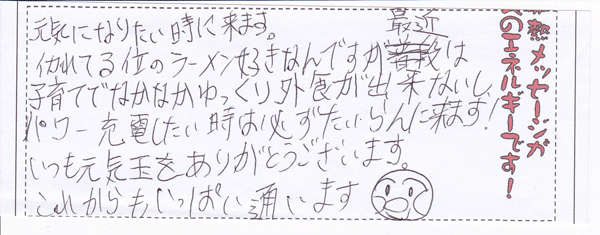 熱メッセージが
のエネルギーです!
元気になりたい時に来ます。
最近
イカれてる位のラーメン好きなんですが は
子育てでなかなかゆっくり外食が出来ないし、
パワー充電したい時は必ずたいらんに来ます!
いつも元気玉をありがとうございます。
これからもいっぱい通います